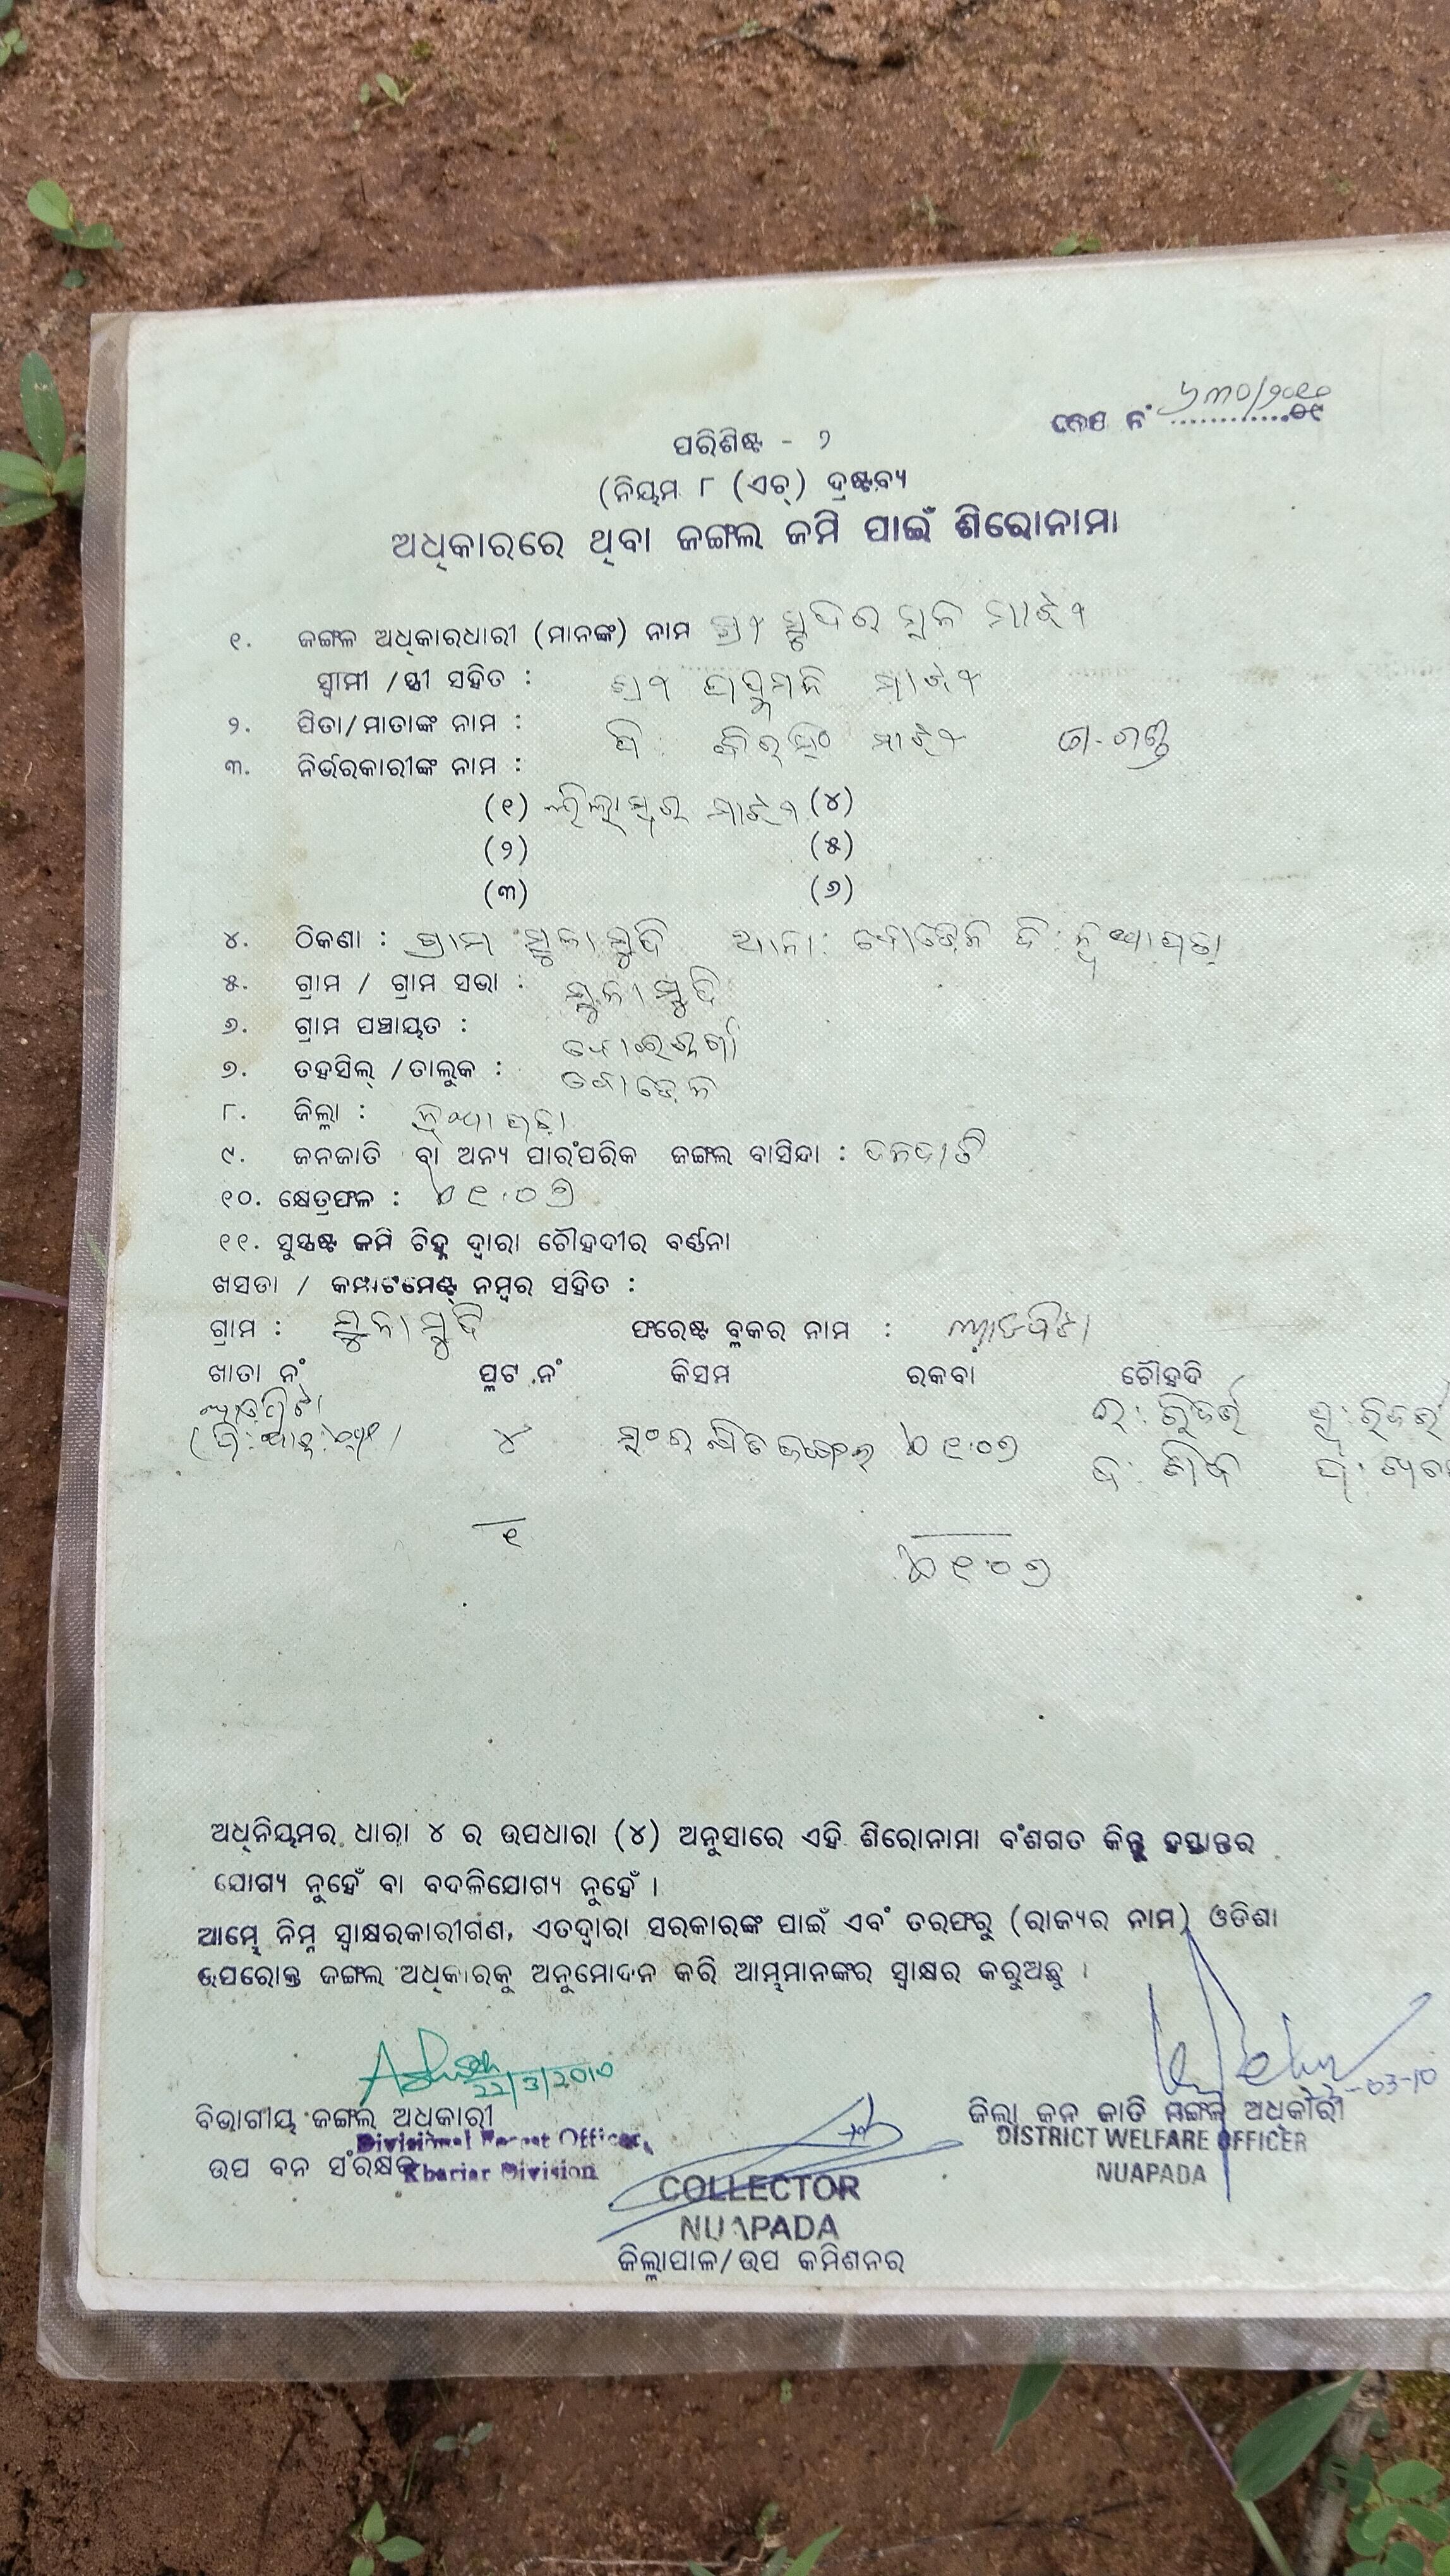 କେସ ନଂ ୬୩୦/୨୦୧୦
ପରିଶିଷ୍ଟ - ୨
(ନିୟମ ୮ (ଏଚ୍) ଦ୍ରଷ୍ଟବ୍ୟ
ଅଧିକାରରେ ଥିବା ଜଙ୍ଗଲ ଜମି ପାଇଁ ଶିରୋନାମା
୧. ଜଙ୍ଗଲ ଅଧିକାରଧାରୀ (ମାନଙ୍କ) ନାମ ମାଝୀ
ସ୍ୱାମୀ /ସ୍ତ୍ରୀ ସହିତ : ମାଝୀ
୨. ପିତା/ମାତାଙ୍କ ନାମ : ମାଝୀ
୩. ନିର୍ଭରକାରୀଙ୍କ ନାମ :
(୧) ମାଝୀ (୪)
(୨) (୫)
(୩) (୬)
୪. ଠିକଣା : ଗ୍ରାମ ସୁନାମୁଦି ଥାନା: ବୋଡେନ ଜି: ନୂଆପଡା
୫. ଗ୍ରାମ / ଗ୍ରାମ ସଭା : ସୁନାମୁଦି
୬. ଗ୍ରାମ ପଞ୍ଚାୟତ :
୭. ତହସିଲ୍ /ତାଲୁକ : ବୋଡେନ
୮. ଜିଲ୍ଲା : ନୂଆପଡା
୯. ଜନଜାତି ବା ଅନ୍ୟ ପାରଂପରିକ ଜଙ୍ଗଲ ବାସିନ୍ଦା : ଜନଜାତି
୧୦. କ୍ଷେତ୍ରଫଳ : ୧.୦୭
୧୧. ସୁସ୍ପଷ୍ଟ ଜମି ଚିହ୍ନ ଦ୍ୱାରା ଚୌହଦୀର ବର୍ଣ୍ଣନା
ଖସଡା / କମ୍ପାଟମେଣ୍ଟ୍ ନମ୍ବର ସହିତ :
ଗ୍ରାମ : ସୁନାମୁଦି ଫରେଷ୍ଟ ବ୍ଲକର ନାମ :
ଖାତା ନଂ ପ୍ଲଟ ନଂ କିସମ ରକବା ଚୌହଦି
ଉ: ରିଜର୍ଭ ପୂ: ରିଜର୍ଭ
୪ ସଂରକ୍ଷିତ ଜଙ୍ଗଲ ୧.୦୭
୧
୧.୦୭
ଅଧିନିୟମର ଧାରା ୪ ର ଉପଧାରା (୪) ଅନୁସାରେ ଏହି ଶିରୋନାମା ବଂଶଗତ କିନ୍ତୁ ହସ୍ତାନ୍ତର
ଯୋଗ୍ୟ ନୁହେଁ ବା ବଦଳିଯୋଗ୍ୟ ନୁହେଁ ।
ଆମ୍ଭେ ନିମ୍ନ ସ୍ୱାକ୍ଷରକାରୀଗଣ, ଏତଦ୍ୱାରା ସରକାରଙ୍କ ପାଇଁ ଏବଂ ତରଫରୁ (ରାଜ୍ୟର ନାମ) ଓଡିଶା
ଉପରୋକ୍ତ ଜଙ୍ଗଲ ଅଧିକାରକୁ ଅନୁମୋଦନ କରି ଆମ୍ଭମାନଙ୍କର ସ୍ୱାକ୍ଷର କରୁଅଛୁ ।
22/3/2010
-03-10
ବିଭାଗୀୟ ଜଙ୍ଗଲ ଅଧିକାରୀ
Divisional Forest Officer,
ଉପ ବନ ସଂରକ୍ଷକ
Khariar Division
ଜିଲ୍ଲା ଜନ ଜାତି ମଙ୍ଗଳ ଅଧିକାରୀ
DISTRICT WELFARE OFFICER
NUAPADA
COLLECTOR
NUAPADA
ଜିଲ୍ଲାପାଳ/ଉପ କମିଶନର